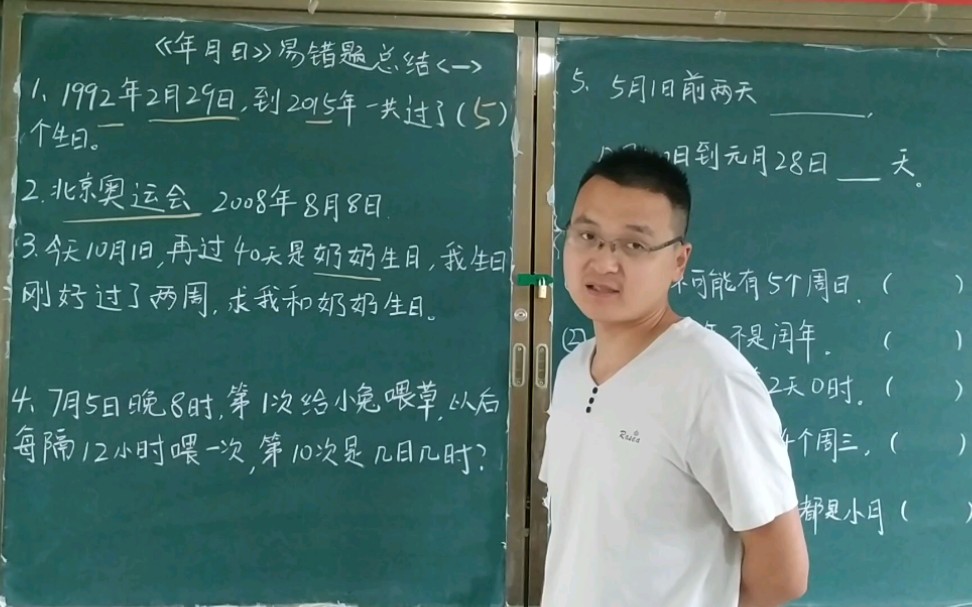 《年月日》易错题总结<一>
1、1992年2月29日,到2015年一共过了(5)
个生日。
2.北京奥运会 2008年8月8日
3.今天10月1日,再过40天是奶奶生日,我生日
刚好过了两周,求我和奶奶生日。
4、7月5日晚8时,第1次给小兔喂草,以后
每隔12小时喂一次,第10次是几日几时?
5、5月1日前两天____.
日到元月28日__天。
不可能有5个周日.( )
(2) 不是闰年.( )
2天0时.( )
4个周三.( )
都是小月( )